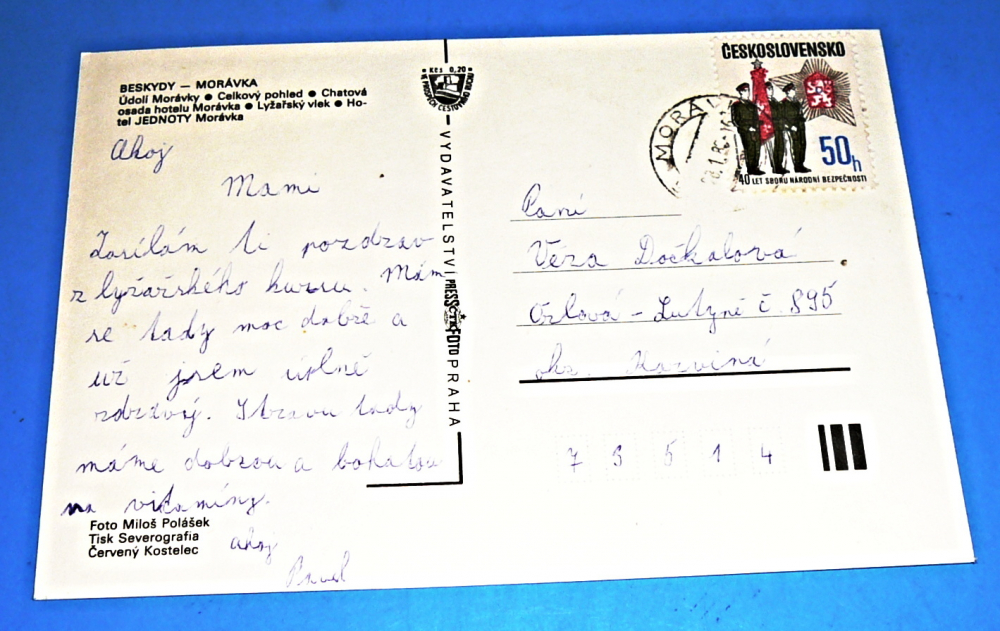 BESKYDY — MORÁVKA
Údolí Morávky ● Celkový pohled ● Chatová
osada hotelu Morávka ● Lyžařský vlek ● Ho-
tel JEDNOTY Morávka
Ahoj
Mami
Zasílám ti pozdrav
z lyžařského kursu. Mám
se tady moc dobře a
už jsem úplně
zdravý. Stravu tady
máme dobrou a bohatou
na vitamíny.
Ahoj
Pavel
Foto Miloš Polášek
Tisk Severografia
Červený Kostelec
Kčs 0,20
VYDAVATELSTVÍ PRESSFOTO PRAHA
ČTK
ČESKOSLOVENSKO
50h
40 LET SBORU NÁRODNÍ BEZPEČNOSTI
MORÁV
Paní
Věra Dočkalová
Orlová - Lutyně č. 895
okr. Karviná
7 3 5 1 4